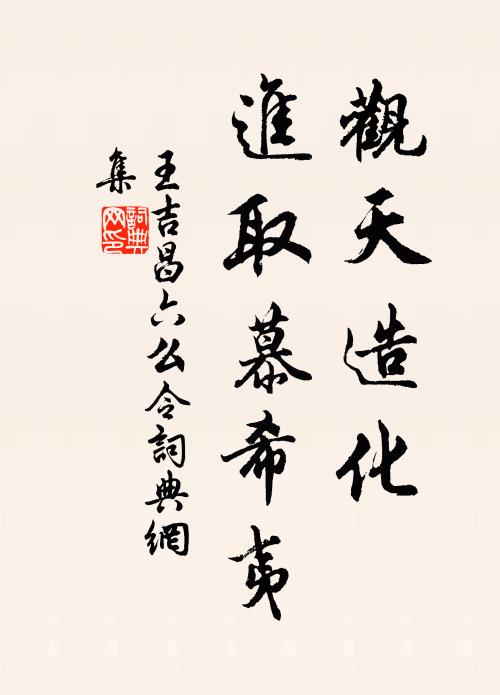 觀天造化
進取慕希夷
王吉昌六么令詞典網
集
詞典网印